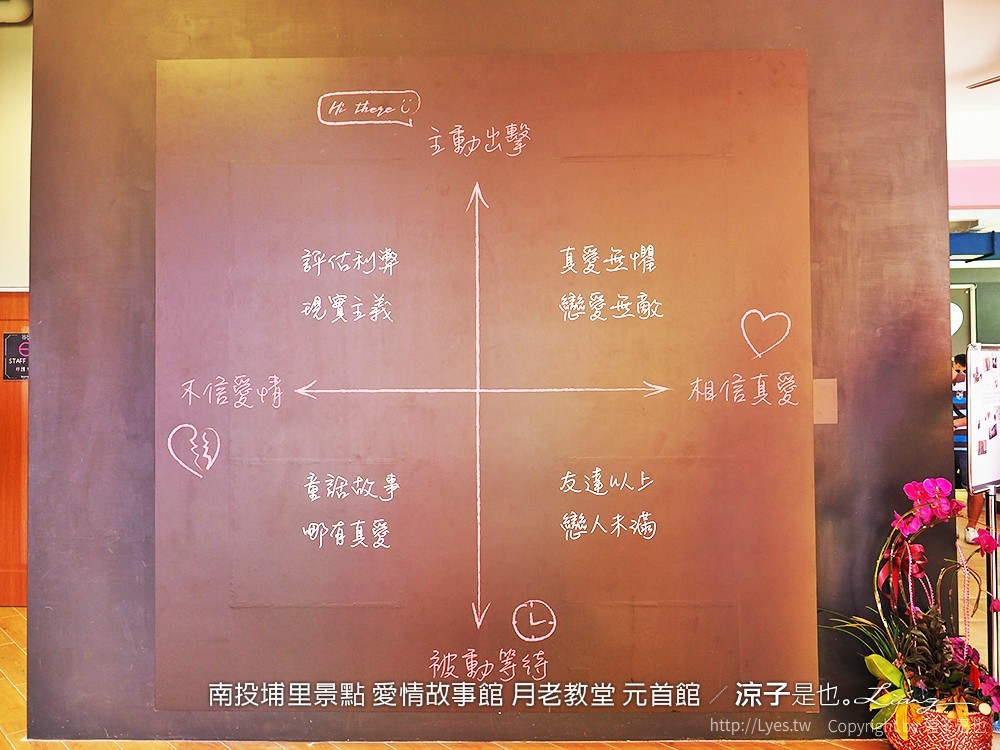 Hi there
主動出擊
評估利弊
現實主義
真愛無懼
戀愛無敵
不信愛情
相信真愛
童話故事
哪有真愛
友達以上
戀人未滿
被動等待
STAFF
南投埔里景點 愛情故事館 月老教堂 元首館 / 涼子是也。
http://Lyes.tw Copyright by